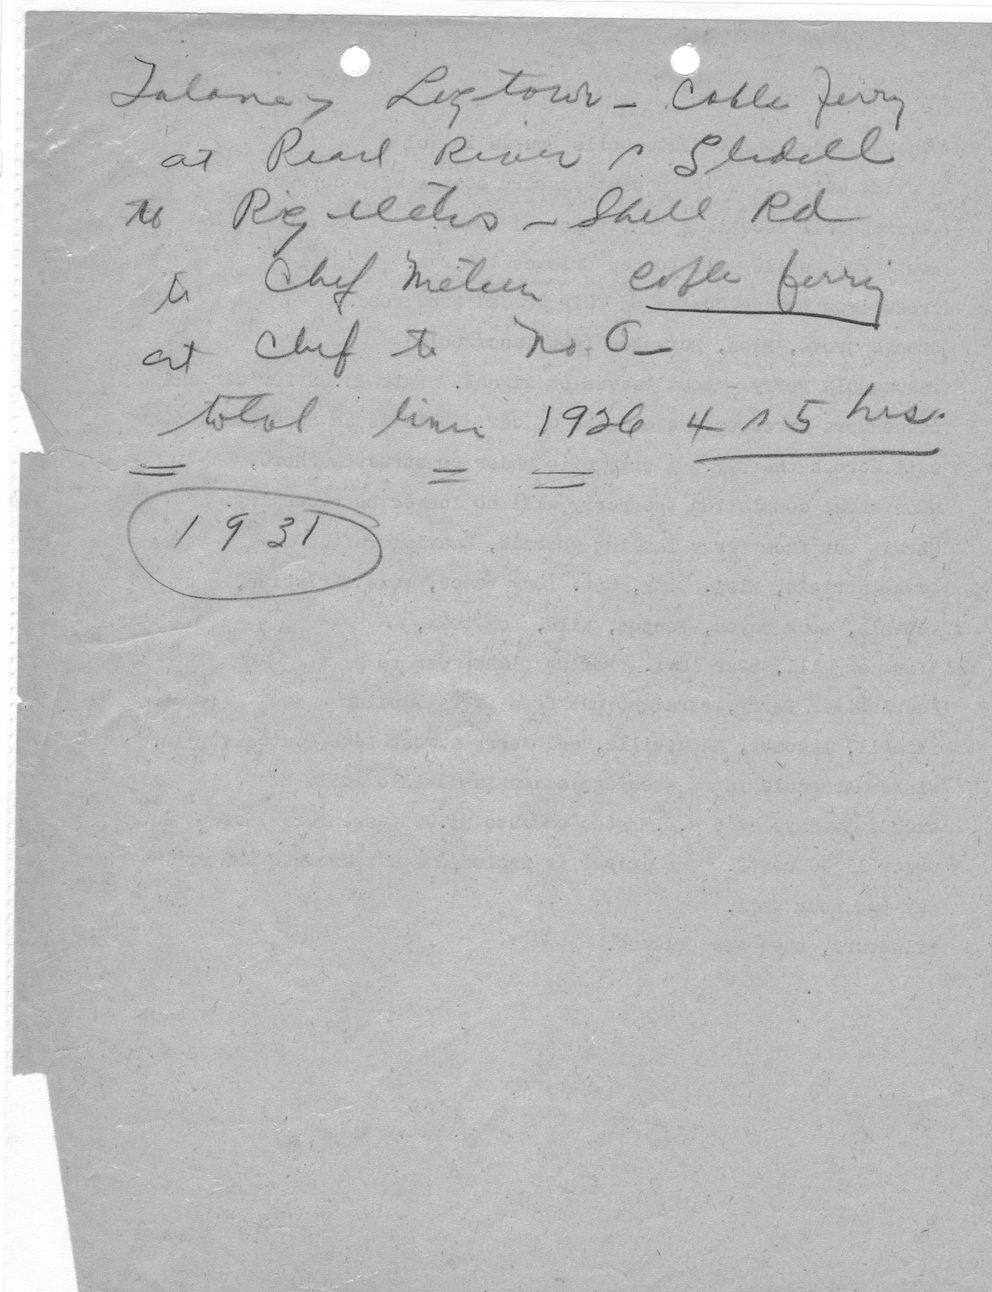 Logtown - Cable Ferry
at Pearl River & Slidell
to Rigolets - Shell Rd
to Chef Menteur Cable ferry
at Chef to N.O. -
total time 1926 4 or 5 hrs.
1931